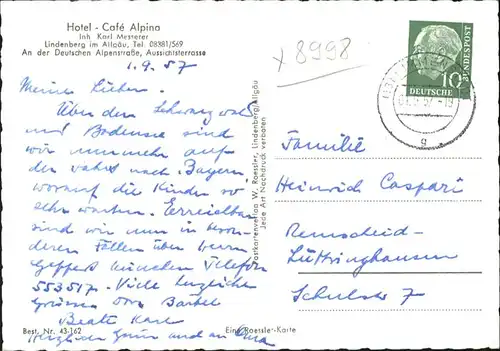 Hotel - Café Alpina
Inh. Karl Mesterer
Lindenberg im Allgäu, Tel. 08381/569
An der Deutschen Alpenstraße, Aussichtsterrasse
1.9.57
Meine Lieben.
Über den Schwarzwald
und Bodensee sind
wir nunmehr auf
der Fahrt nach Bayern,
worauf die Kinder so
sehr warten. Erreichbar
sind wir nun in beson-
deren Fällen über
München Telefon
553517. Viele herzliche
Grüsse Bärbel
Beate Karl
Best. Nr. 43-162
Ein Roessle-Karte
Postkartenverlag W. Roessler, Lindenberg/Allgäu
Jede Art Nachdruck verboten
x 8998
DEUTSCHE
BUNDESPOST
10
g
Familie
Heinrich Caspari
Remscheid-
Lüttringhausen
Schulstr 7